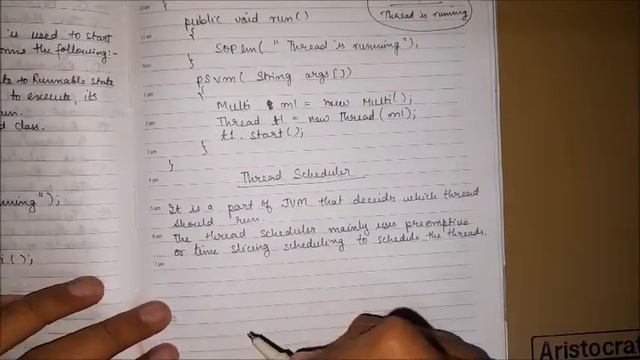 is used to start
the following:-
to Runnable State
to execute, its
run.
class.
unning");
i();
Thread is running
{
public void run()
{
SOPln( "Thread is running");
}
psvm( String args[])
{
Multi m1 = new Multi();
Thread t1 = new Thread(m1);
t1.start();
}
}
Thread Scheduler
It is a part of JVM that decides which thread
should run.
The thread scheduler mainly uses preemptive
or time slicing scheduling to schedule the threads.
Aristocra